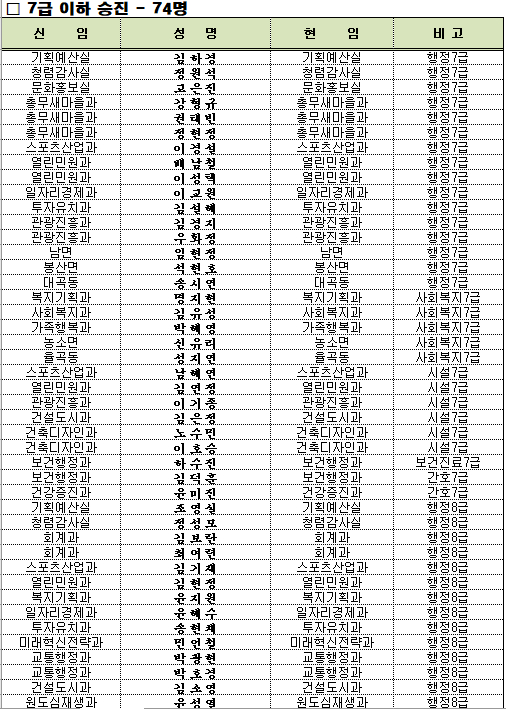 □ 7급 이하 승진 - 74명
신 임 성 명 현 임 비 고
기획예산실 김하경 기획예산실 행정7급
청렴감사실 정원석 청렴감사실 행정7급
문화홍보실 고은진 문화홍보실 행정7급
총무새마을과 강형규 총무새마을과 행정7급
총무새마을과 권태빈 총무새마을과 행정7급
총무새마을과 정현정 총무새마을과 행정7급
스포츠산업과 이경설 스포츠산업과 행정7급
열린민원과 배남철 열린민원과 행정7급
열린민원과 이성택 열린민원과 행정7급
일자리경제과 이교원 일자리경제과 행정7급
투자유치과 김설혜 투자유치과 행정7급
관광진흥과 김경지 관광진흥과 행정7급
관광진흥과 우화정 관광진흥과 행정7급
남면 임현정 남면 행정7급
봉산면 석현호 봉산면 행정7급
대곡동 송시연 대곡동 행정7급
복지기획과 명지현 복지기획과 사회복지7급
사회복지과 김유성 사회복지과 사회복지7급
가족행복과 박혜영 가족행복과 사회복지7급
농소면 신유리 농소면 사회복지7급
율곡동 성지연 율곡동 사회복지7급
스포츠산업과 남혜연 스포츠산업과 시설7급
열린민원과 김연정 열린민원과 시설7급
관광진흥과 이기종 관광진흥과 시설7급
건설도시과 김은정 건설도시과 시설7급
건축디자인과 노수민 건축디자인과 시설7급
건축디자인과 이호승 건축디자인과 시설7급
보건행정과 하수진 보건행정과 보건진료7급
보건행정과 김덕훈 보건행정과 간호7급
건강증진과 윤미진 건강증진과 간호7급
기획예산실 조영실 기획예산실 행정8급
청렴감사실 정성모 청렴감사실 행정8급
회계과 김보란 회계과 행정8급
회계과 최여련 회계과 행정8급
스포츠산업과 김기재 스포츠산업과 행정8급
열린민원과 김현정 열린민원과 행정8급
복지기획과 윤지원 복지기획과 행정8급
일자리경제과 윤혜수 일자리경제과 행정8급
투자유치과 송현채 투자유치과 행정8급
미래혁신전략과 민언철 미래혁신전략과 행정8급
교통행정과 박광현 교통행정과 행정8급
교통행정과 박호경 교통행정과 행정8급
건설도시과 김소영 건설도시과 행정8급
원도심재생과 유성영 원도심재생과 행정8급